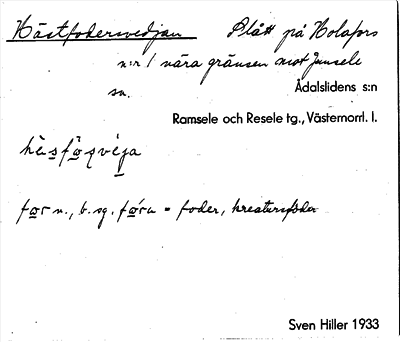 Hästfodersvedjan Slått på Holafors
n:r 1 nära gränsen mot Junsele
sn.
Ådalslidens s:n
Ramsele och Resele tg., Västernorrl. l.
foder, kreatursfoder
Sven Hiller 1933